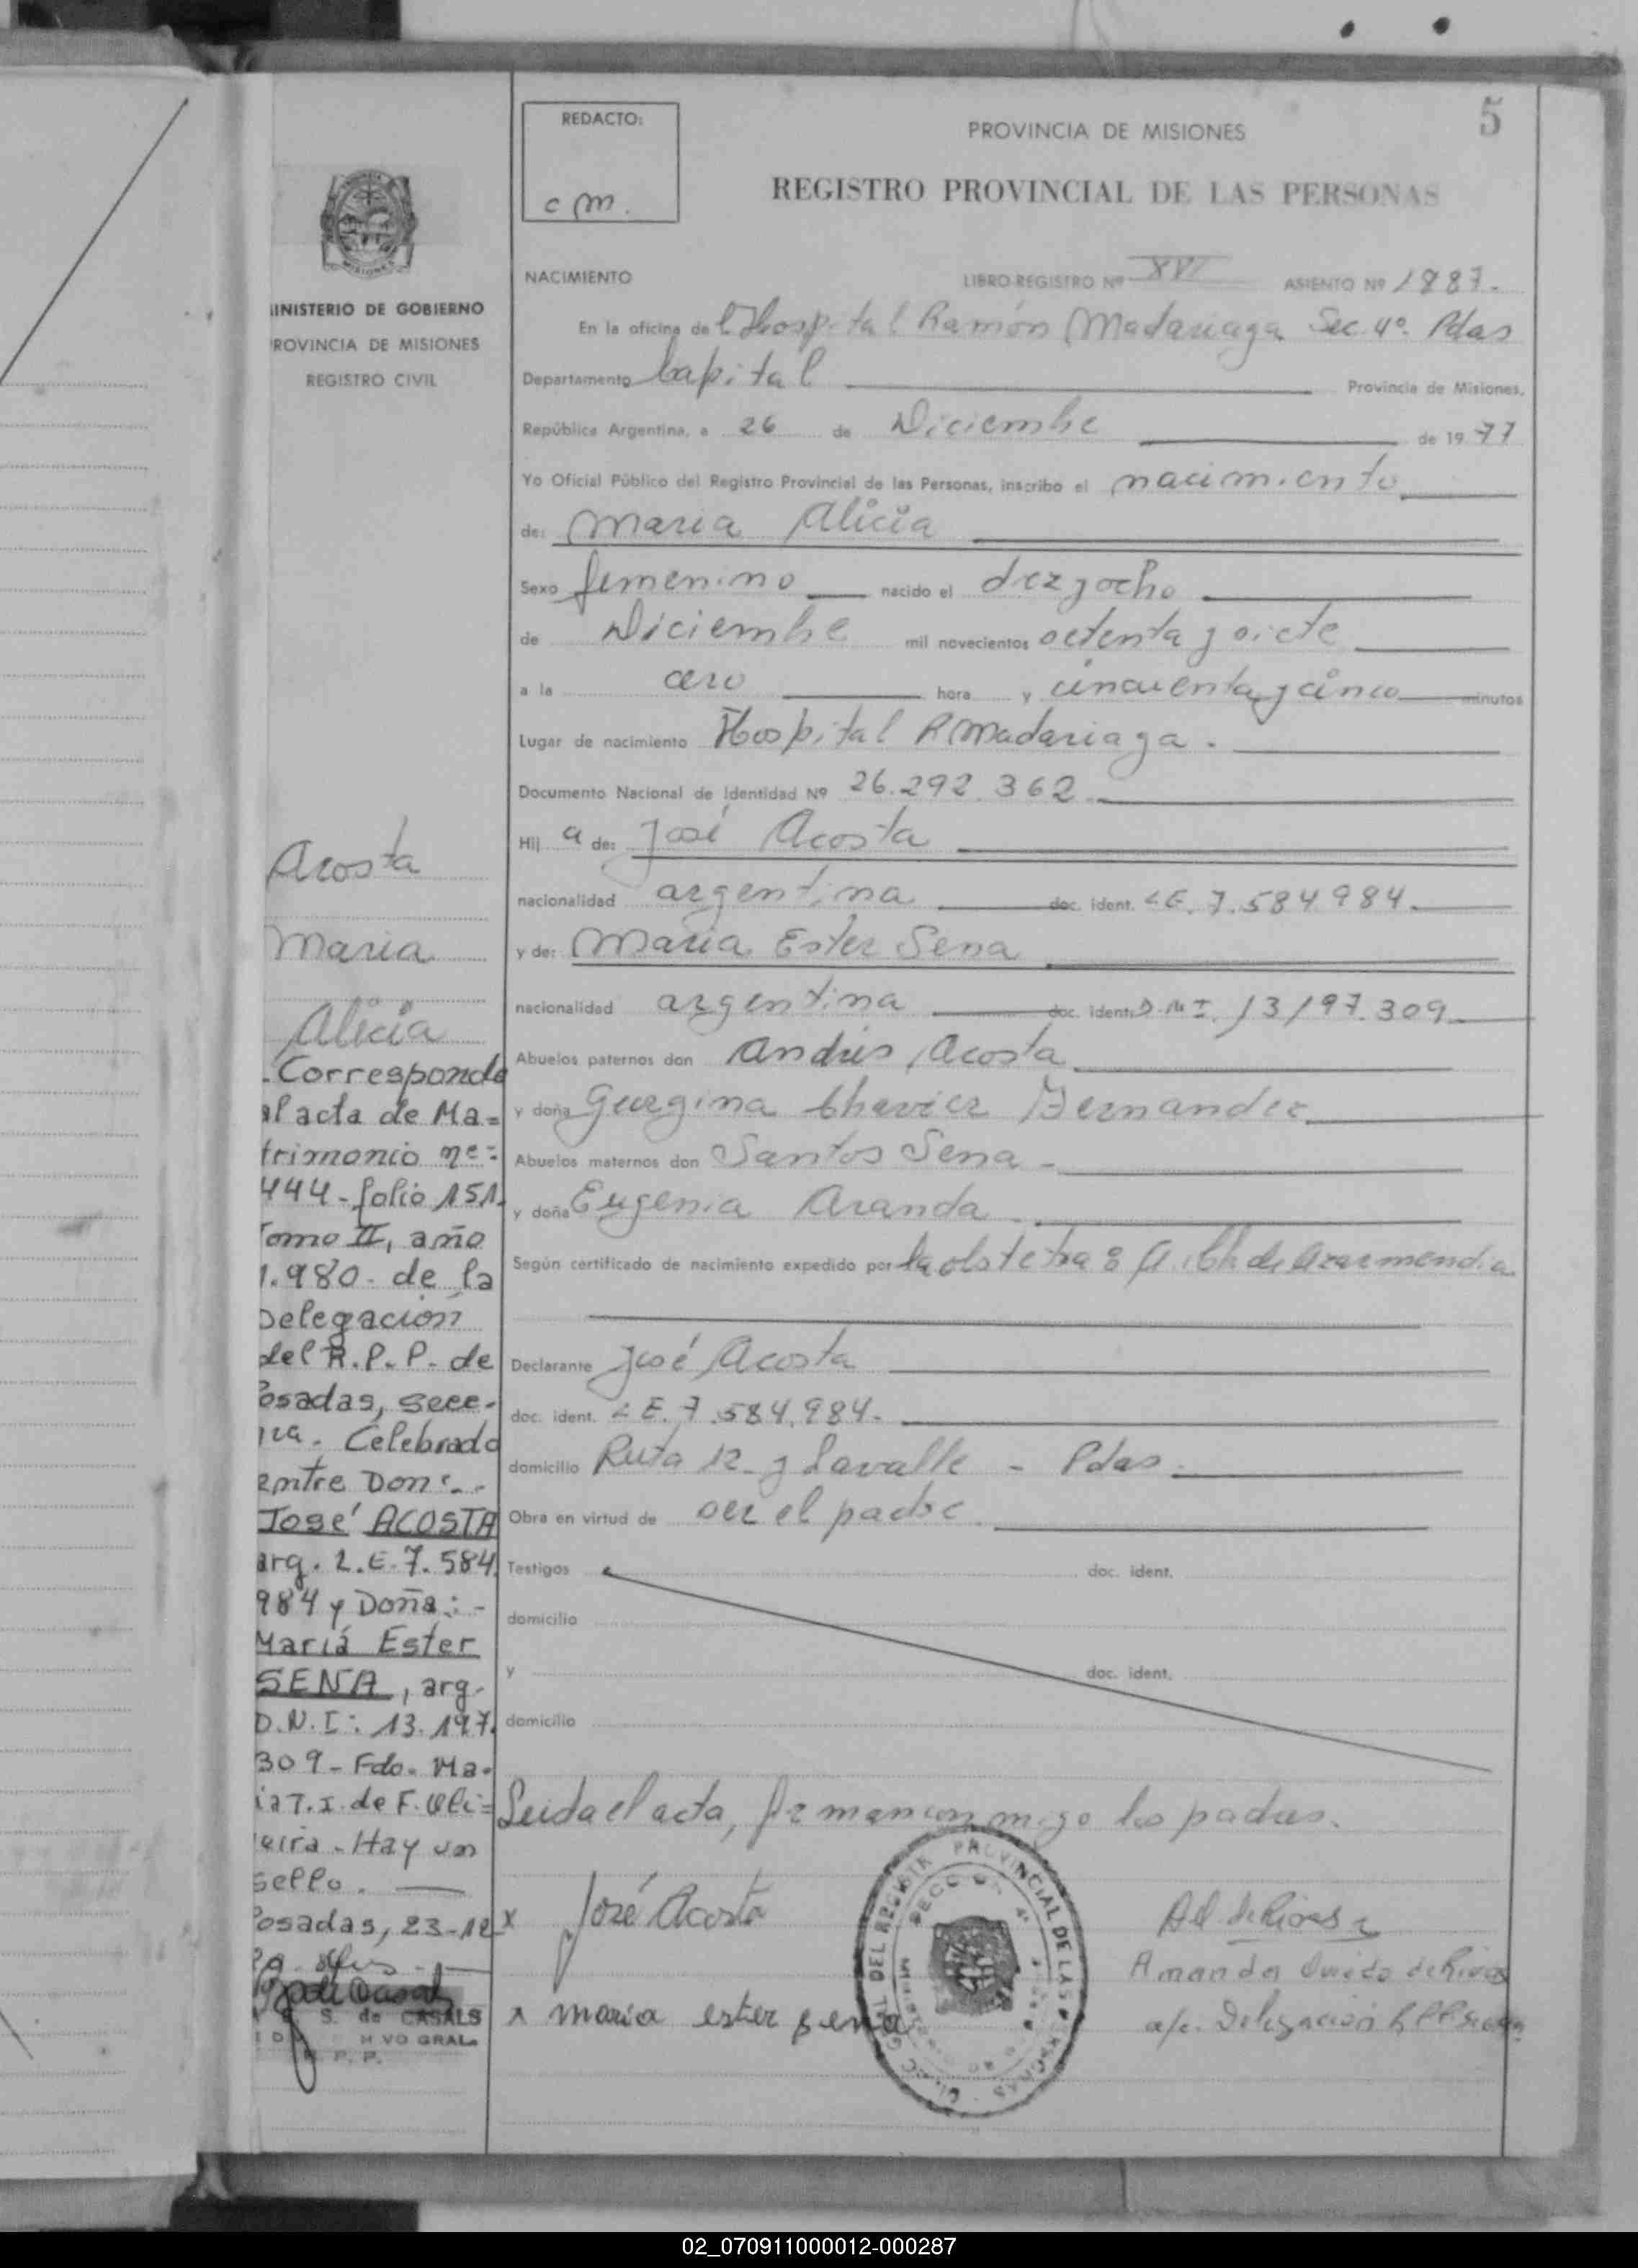 5
REDACTO:
c m.
PROVINCIA DE MISIONES
REGISTRO PROVINCIAL DE LAS PERSONAS
NACIMIENTO LIBRO REGISTRO Nº XVI ASIENTO Nº 1887.
En la oficina del Hospital Ramón Madariaga Sec. 4º. Pdas
Departamento Capital Provincia de Misiones,
República Argentina, a 26 de Diciembre de 1977
Yo Oficial Público del Registro Provincial de las Personas, inscribo el nacimiento
de: Maria Alicia
Sexo femenino nacido el diez y ocho
de Diciembre mil novecientos setenta y siete
a la cero hora y cincuenta y cinco minutos
Lugar de nacimiento Hospital R Madariaga.
Documento Nacional de Identidad Nº 26.292.362
Hij a de: José Acosta
nacionalidad argentina doc. ident. LE. 7.584.984.
y de: Maria Ester Sena
nacionalidad argentina doc. ident. D.N.I. 13197.309
Abuelos paternos don Andrés Acosta
y doña Georgina Chavier Fernandez
Abuelos maternos don Santos Sena -
y doña Eugenia Aranda
Según certificado de nacimiento expedido por la obstetra: A. Ch de Azarmendia
Declarante José Acosta
doc. ident. LE. 7.584.984.
domicilio Ruta 12 y Lavalle - Pdas.
Obra en virtud de ser el padre.
Testigos doc. ident.
domicilio
y doc. ident.
domicilio
Leida el acta, firman conmigo los padres.
x José Acosta
x maria ester sena
Amanda Oviedo de Rivas
a/c. Delegación
MINISTERIO DE GOBIERNO
PROVINCIA DE MISIONES
REGISTRO CIVIL
Acosta
Maria
Alicia
-Corresponde
al acta de Ma=
trimonio nº:
444-folio 151.
Tomo II, año
1.980- de la
Delegación
del R.P.P. de
Posadas, secc-
1ra. Celebrado
entre Don:-
José ACOSTA
arg. L.E. 7.584.
984 y Doña:-
Mariá Ester
SENA, arg-
D.N.I: 13.197.
309- Fdo. Ma-
ria T.I. de F. Oli=
veira-Hay un
sello.
Posadas, 23-12
S. de CASALS
H VO GRAL.
R. P. P.
02_070911000012-000287